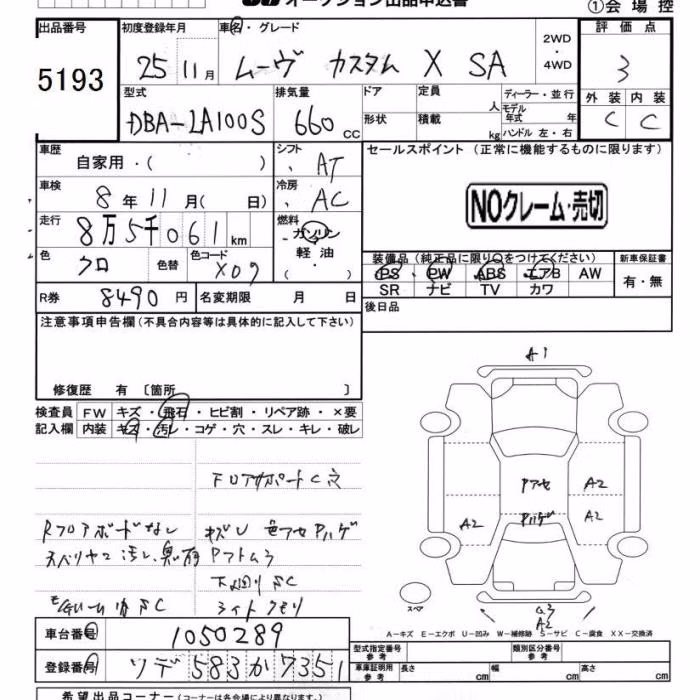 オークション出品申込書
①会場控
出品番号 初度登録年月 車名・グレード 2WD・4WD 評価点
5193 25 11月 ムーヴ カスタム X SA 3
型式 排気量 ドア 定員 人 ディーラー・並行 外装 内装
DBA-LA100S 660 cc 形状 積載 kg モデル年式 年 ハンドル 左・右 C C
車歴 自家用・( ) シフト AT セールスポイント (正常に機能するものに限ります)
車検 8年11月( 日) 冷房 AC NOクレーム・売切
走行 8万5千061km 燃料 ガソリン・軽油・( )
装備品(純正品に限り〇をつけてください) 新車保証書
色 クロ 色替 色コード X07 PS PW ABS エアB AW 有・無
SR ナビ TV カワ
R券 8490円 名変期限 月 日 後日品
注意事項申告欄(不具合内容等は具体的に記入して下さい)
修復歴 有〔箇所 〕
A1
検査員記入欄 FW キズ・飛石・ヒビ割・リペア跡・×要
内装 キズ・汚レ・コゲ・穴・スレ・キレ・破レ
フロアサポートC
Pアセ A2
RフロアボードなL キズU 色アセ Pハゲ
A2 Pハゲ A2
下廻りSC
スペア
ライトクモリ
A2
A-キズ E-エクボ U-凹み W-補修跡 S-サビ C-腐食 XX-交換済
車台番号 1050289
型式指定番号 参考 類別区分番号 参考
登録番号 ソデ583か7351
車庫証明用 参考 長さ cm 幅 cm 高さ cm
希望出品コーナー(コーナーは各会場により異なります。)